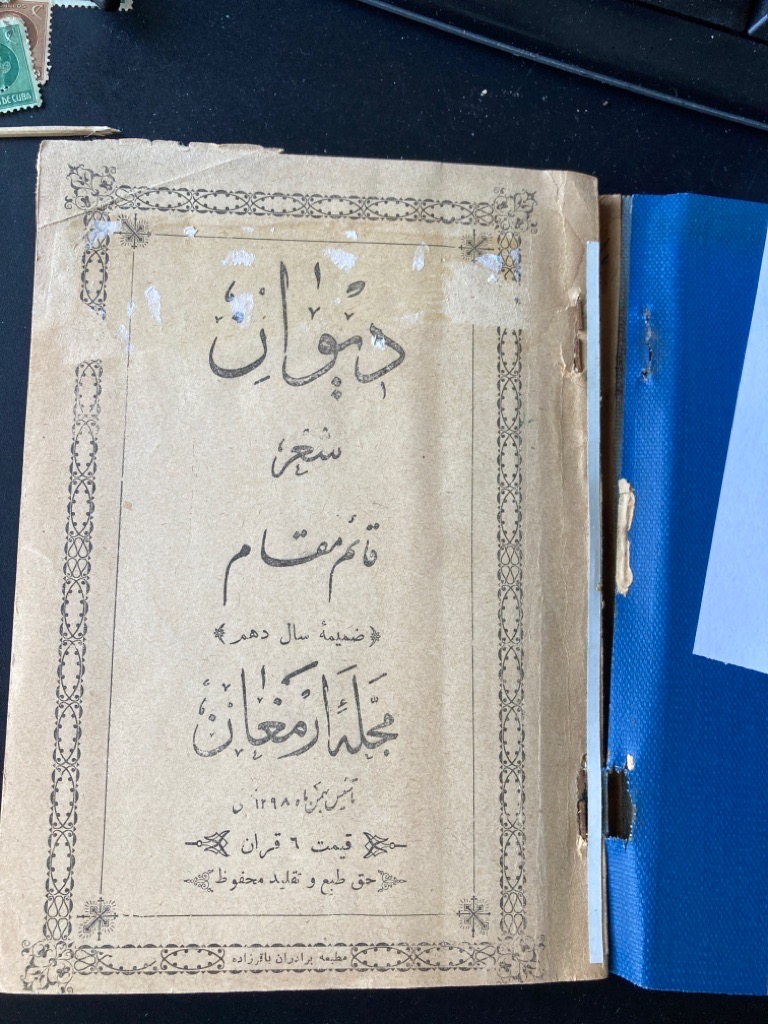 DE CUBA
دیوان
شعر
قائم مقام
ضمیمهٔ سال دهم
مجلهٔ ارمغان
تأسیس بهمن ماه ۱۲۹۸
قیمت ٦ قران
حق طبع و تقلید محفوظ
مطبعه برادران باقرزاده